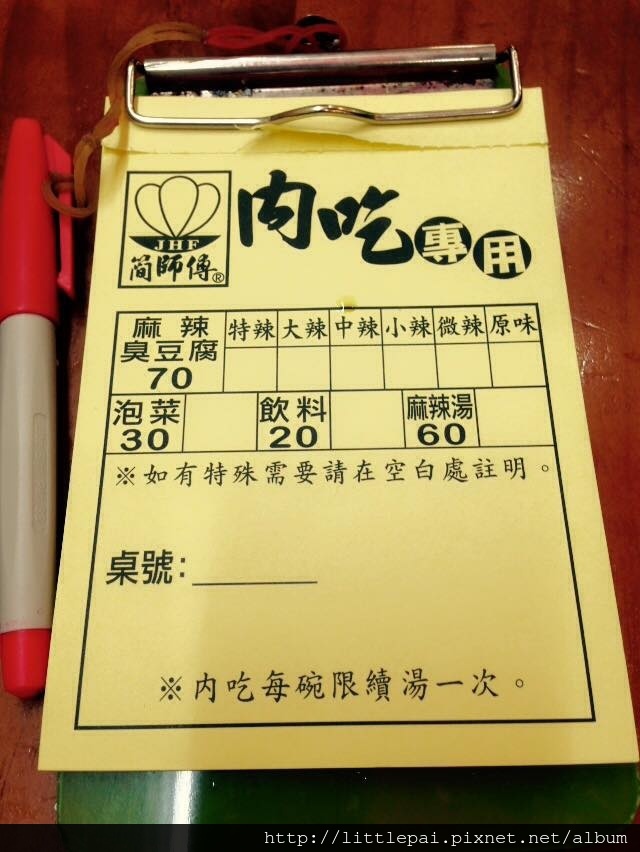 JHF
簡師傅®
內吃專用
麻辣臭豆腐 70
特辣 大辣 中辣 小辣 微辣 原味
泡菜 30 飲料 20 麻辣湯 60
※如有特殊需要請在空白處註明。
桌號：
※內吃每碗限續湯一次。
http://littlepai.pixnet.net/album